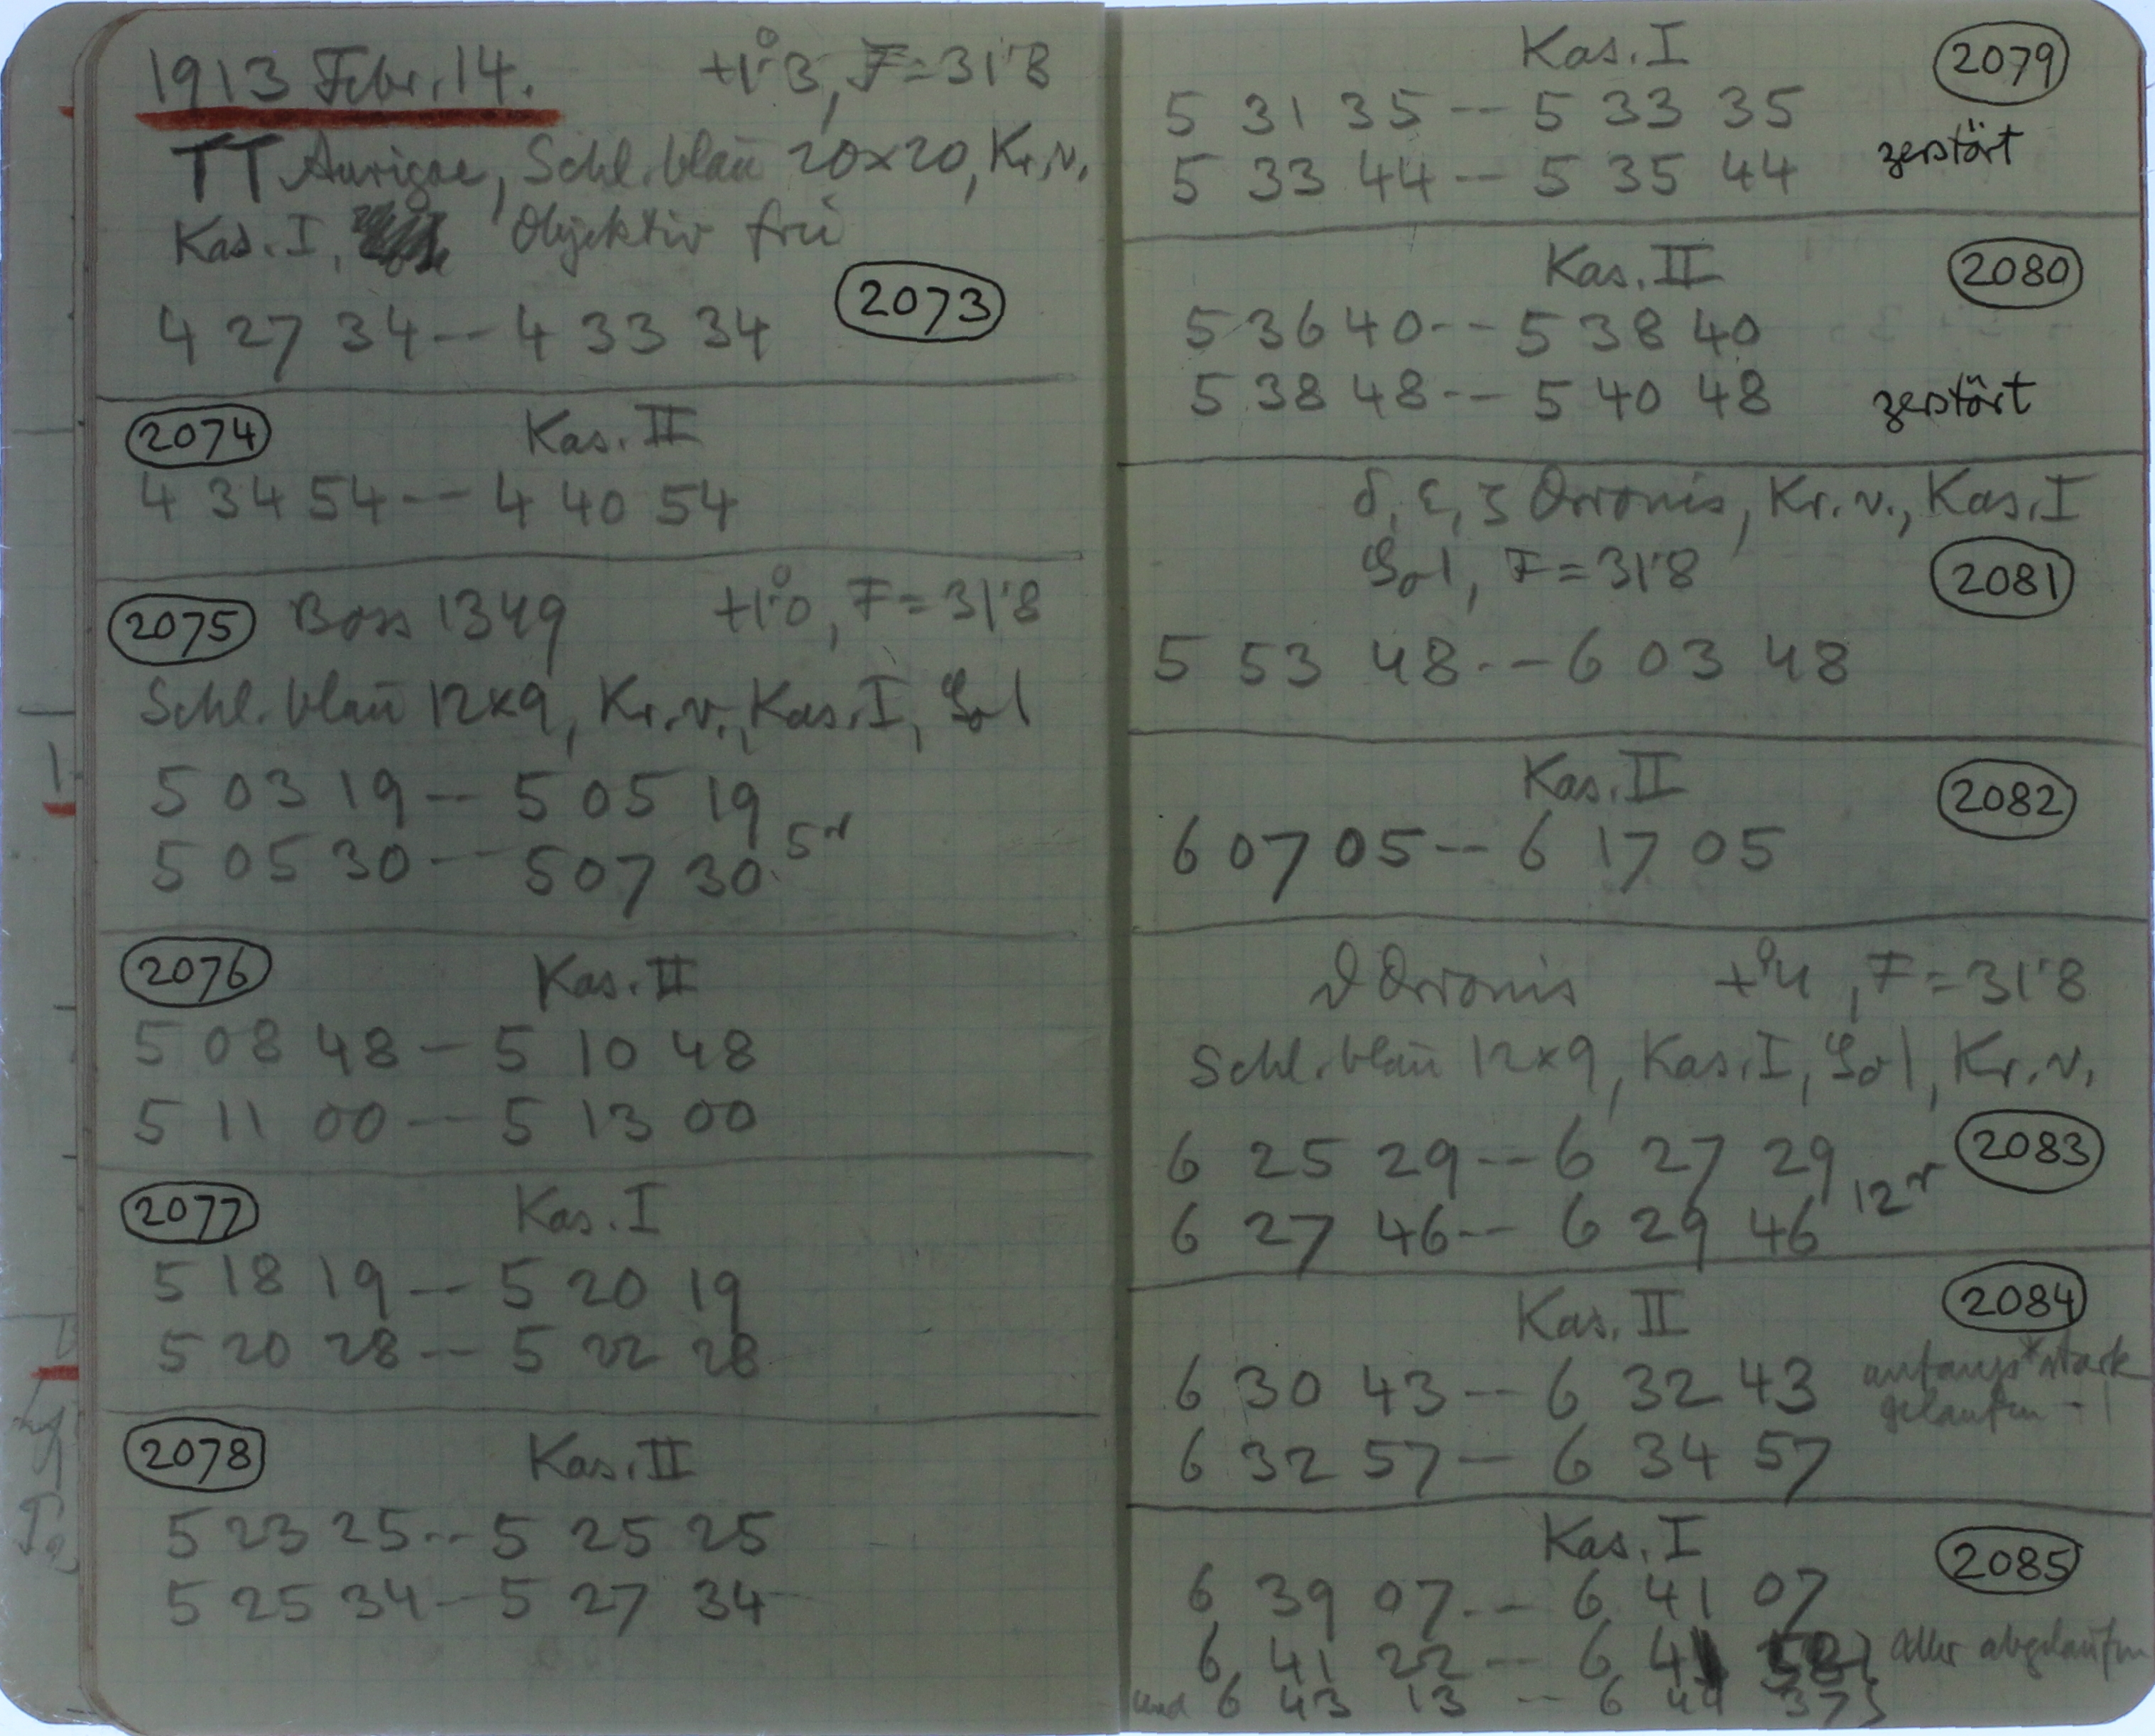 1913 Febr. 14. +1°3, F=31'8
TT Aurigae, Schl. blau 20×20, Kr. v.
Kas. I, Objektiv frei
4 27 34 -- 4 33 34 2073
2074 Kas. II
4 34 54 -- 4 40 54
2075 Boss 1349 +1°0, F=31'8
Schl. blau 12×9, Kr. v., Kas. I,
5 03 19 -- 5 05 19
5 05 30 -- 5 07 30
2076 Kas. II
5 08 48 -- 5 10 48
5 11 00 -- 5 13 00
2077 Kas. I
5 18 19 -- 5 20 19
5 20 28 -- 5 22 28
2078 Kas. II
5 23 25 -- 5 25 25
5 25 34 -- 5 27 34
Kas. I 2079
5 31 35 -- 5 33 35
5 33 44 -- 5 35 44 zerstört
Kas. II 2080
5 36 40 -- 5 38 40
5 38 48 -- 5 40 48 zerstört
δ, ε, ζ Orionis, Kr. v., Kas. I
F=31'8 2081
5 53 48 -- 6 03 48
Kas. II 2082
6 07 05 -- 6 17 05
ϑ Orionis +°4, F=31'8
Schl. blau 12×9, Kas. I, Kr. v.
6 25 29 -- 6 27 29 2083
6 27 46 -- 6 29 46
Kas. II 2084
6 30 43 -- 6 32 43 anfangs * stark
gelaufen - !
6 32 57 -- 6 34 57
Kas. I 2085
6 39 07 -- 6 41 07
6 41 22 -- 6 41 abgelaufen
und 6 43 13 -- 6 44 37